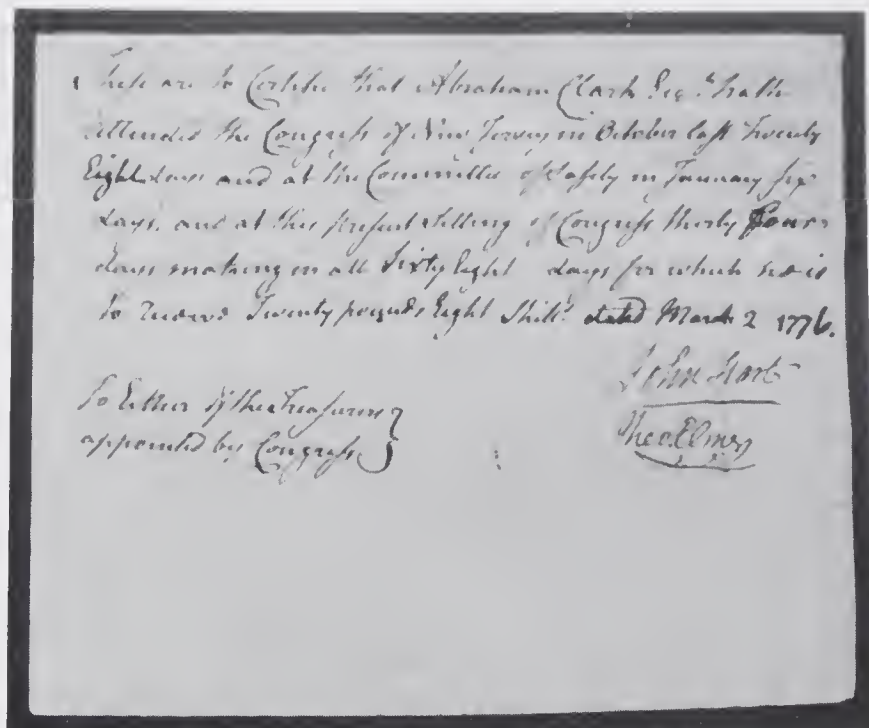 These are to Certifie that Abraham Clark Esqr. hath
attended the Congress of New Jersey in October last Twenty
Eight days and at the Committee of Safety in January six
days, and at this present sitting of Congress thirty Four
days making in all Sixty Eight days for which he is
to receive Twenty pounds Eight Shills. dated March 2 1776.
John Hart
To Either of the Treasurers
appointed by Congress
Theo. Elmer